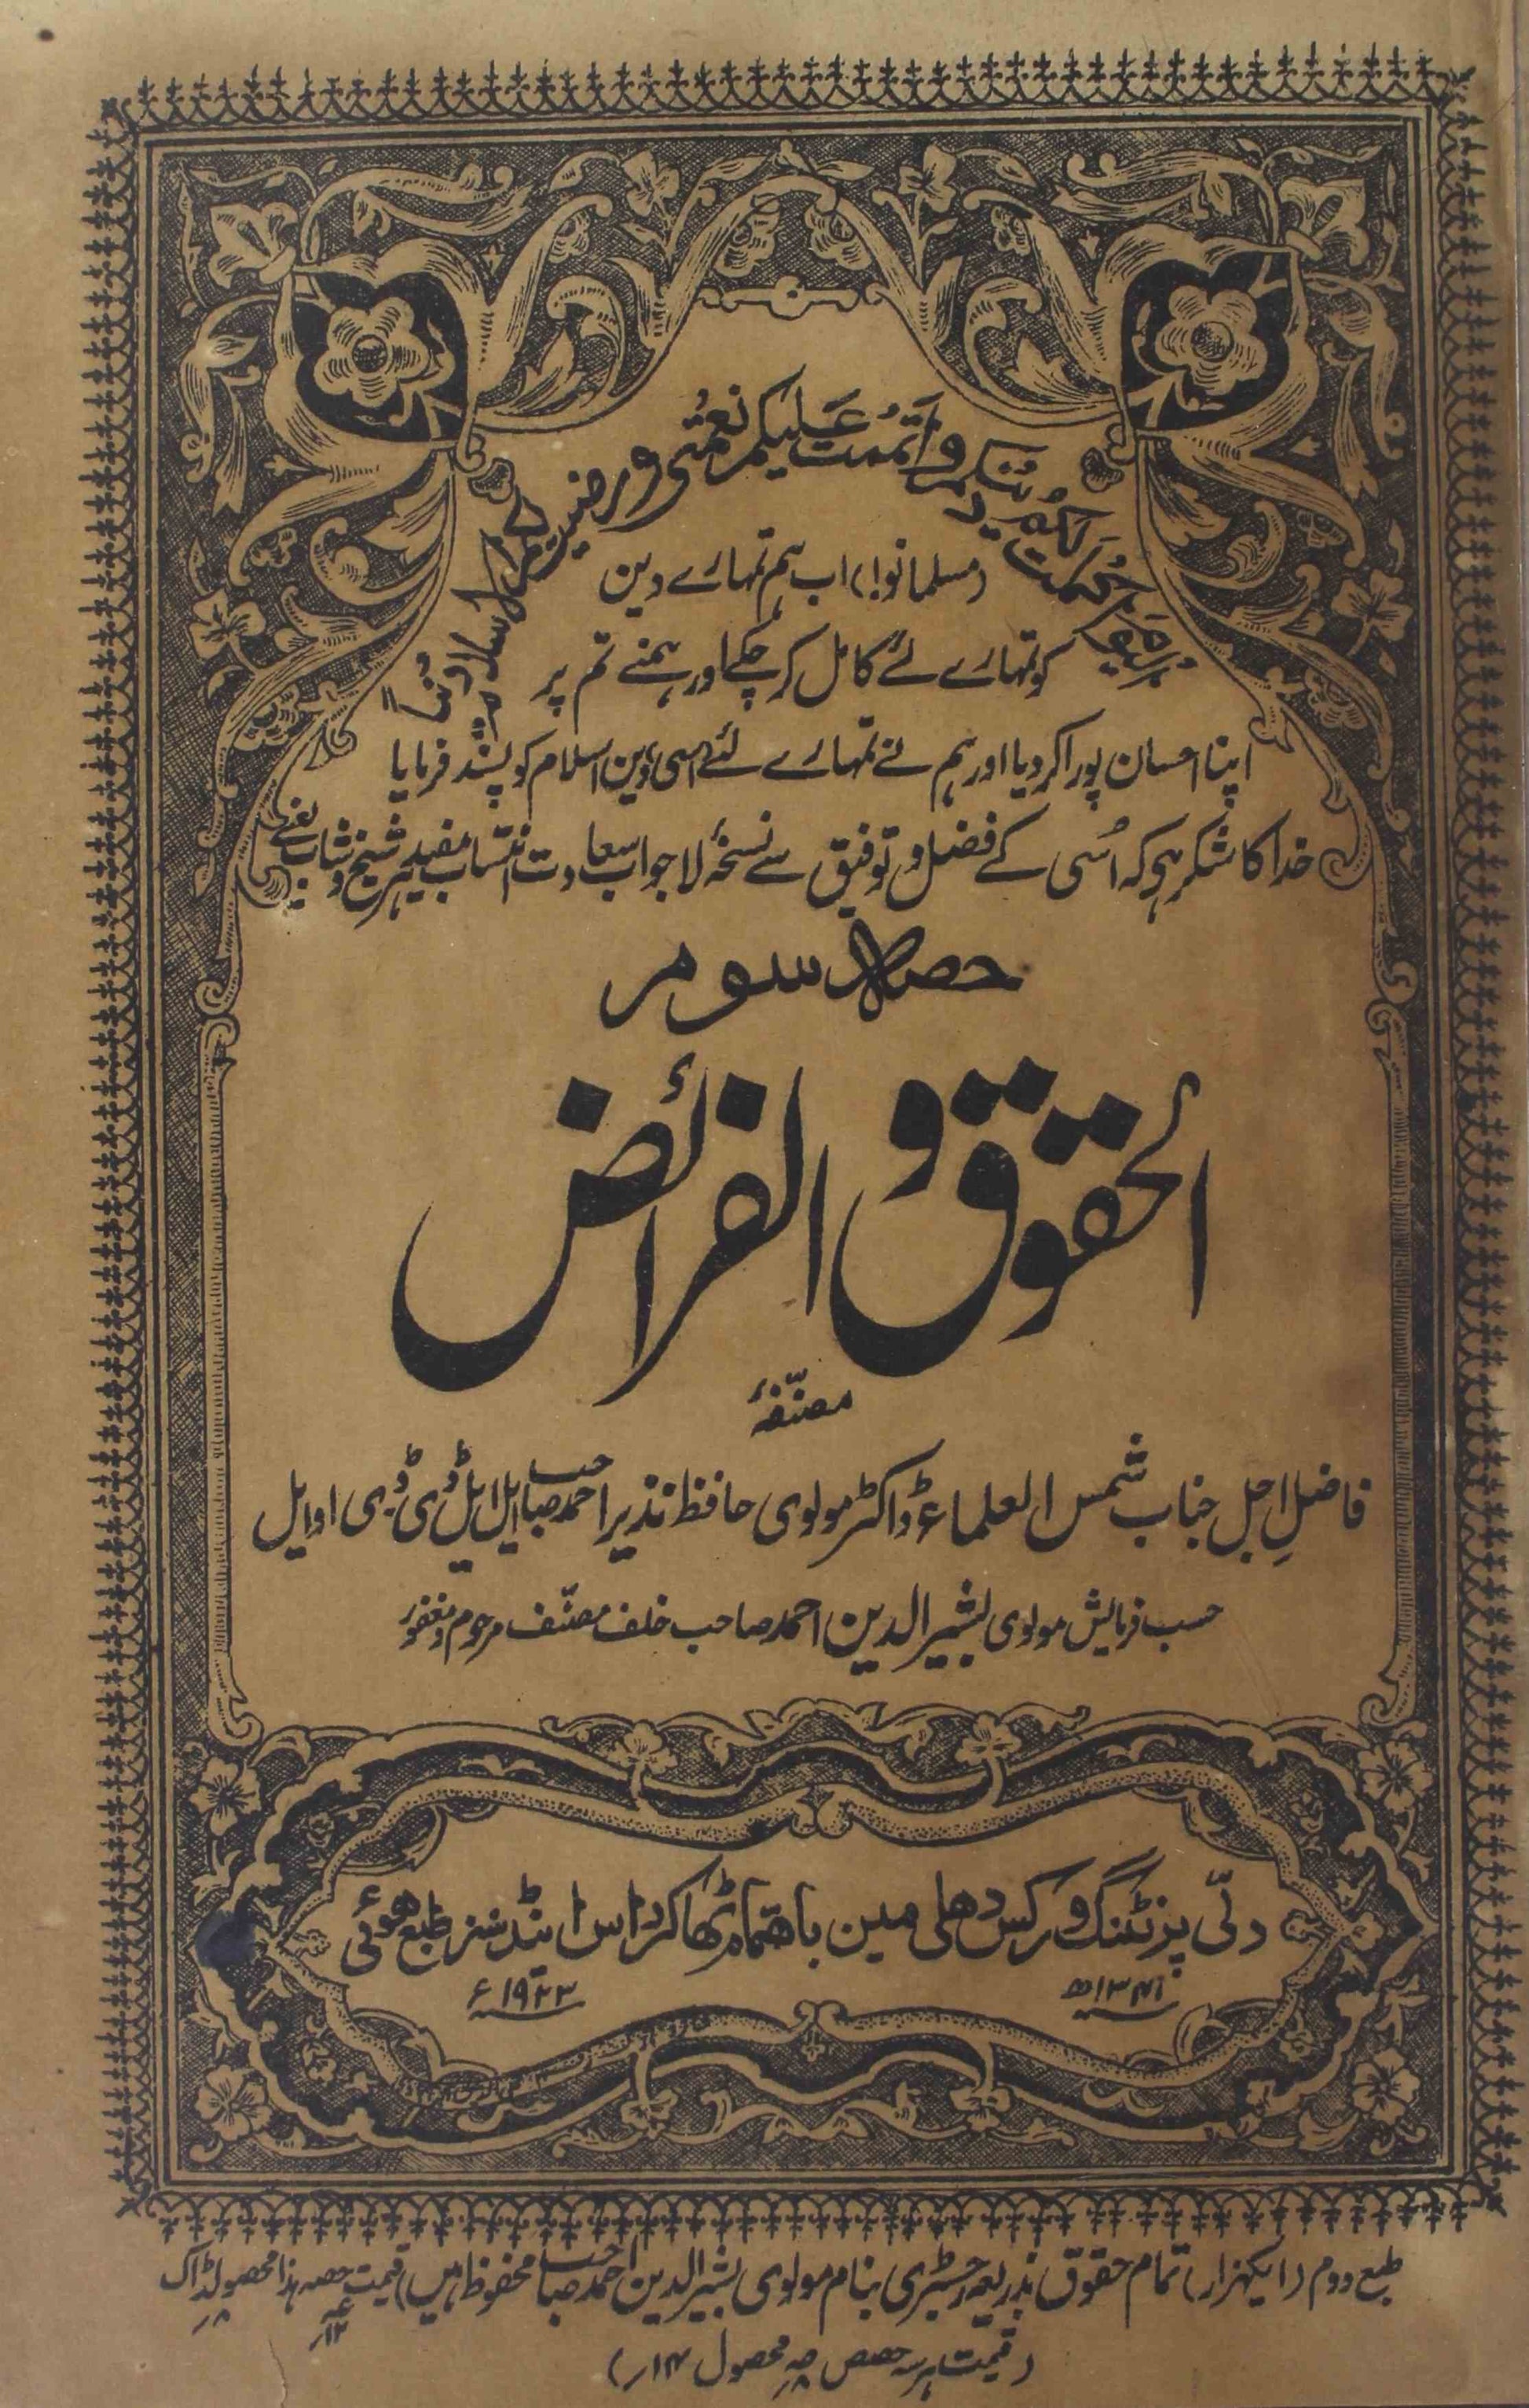 اَلْیَوْمَ اَکْمَلْتُ لَکُمْ دِیْنَکُمْ وَاَتْمَمْتُ عَلَیْکُمْ نِعْمَتِی وَرَضِیْتُ لَکُمُ الْاِسْلَامَ دِیْنًا
(مسلمانو!) اب ہم تمہارے دین
کو تمہارے لئے کامل کر چکے اور ہمنے تم پر
اپنا احسان پورا کر دیا اور ہم نے تمہارے لئے (اسی) دین اسلام کو پسند فرمایا
خدا کا شکر ہی کہ اُسی کے فضل و توفیق سے نسخۂ لاجواب سعادت انتساب مفید ہر شیخ و شاب یعنی
حصہ سوم
الحقوق و الفرائض
مصنّفۂ
فاضلِ اجل جناب شمس العلماء ڈاکٹر مولوی حافظ نذیر احمد صاحب ایل ایل ڈی ڈی او ایل
حسب فرمایش مولوی بشیر الدین احمد صاحب خلف مصنّف مرحوم و مغفور
دلّی پرنٹنگ ورکس دھلی مین باھتمام ٹھاکر داس اینڈ سنز طبع ھوئی
۱۳۴۱ھ ۱۹۲۳ء
طبع دوم (ایکہزار) تمام حقوق بذریعہ رجسٹری بنام مولوی بشیر الدین احمد صاحب محفوظ ہیں) قیمت حصہ ہذا محصولڈاک
(قیمت ہر سہ حصص محصول ۱۴؍)